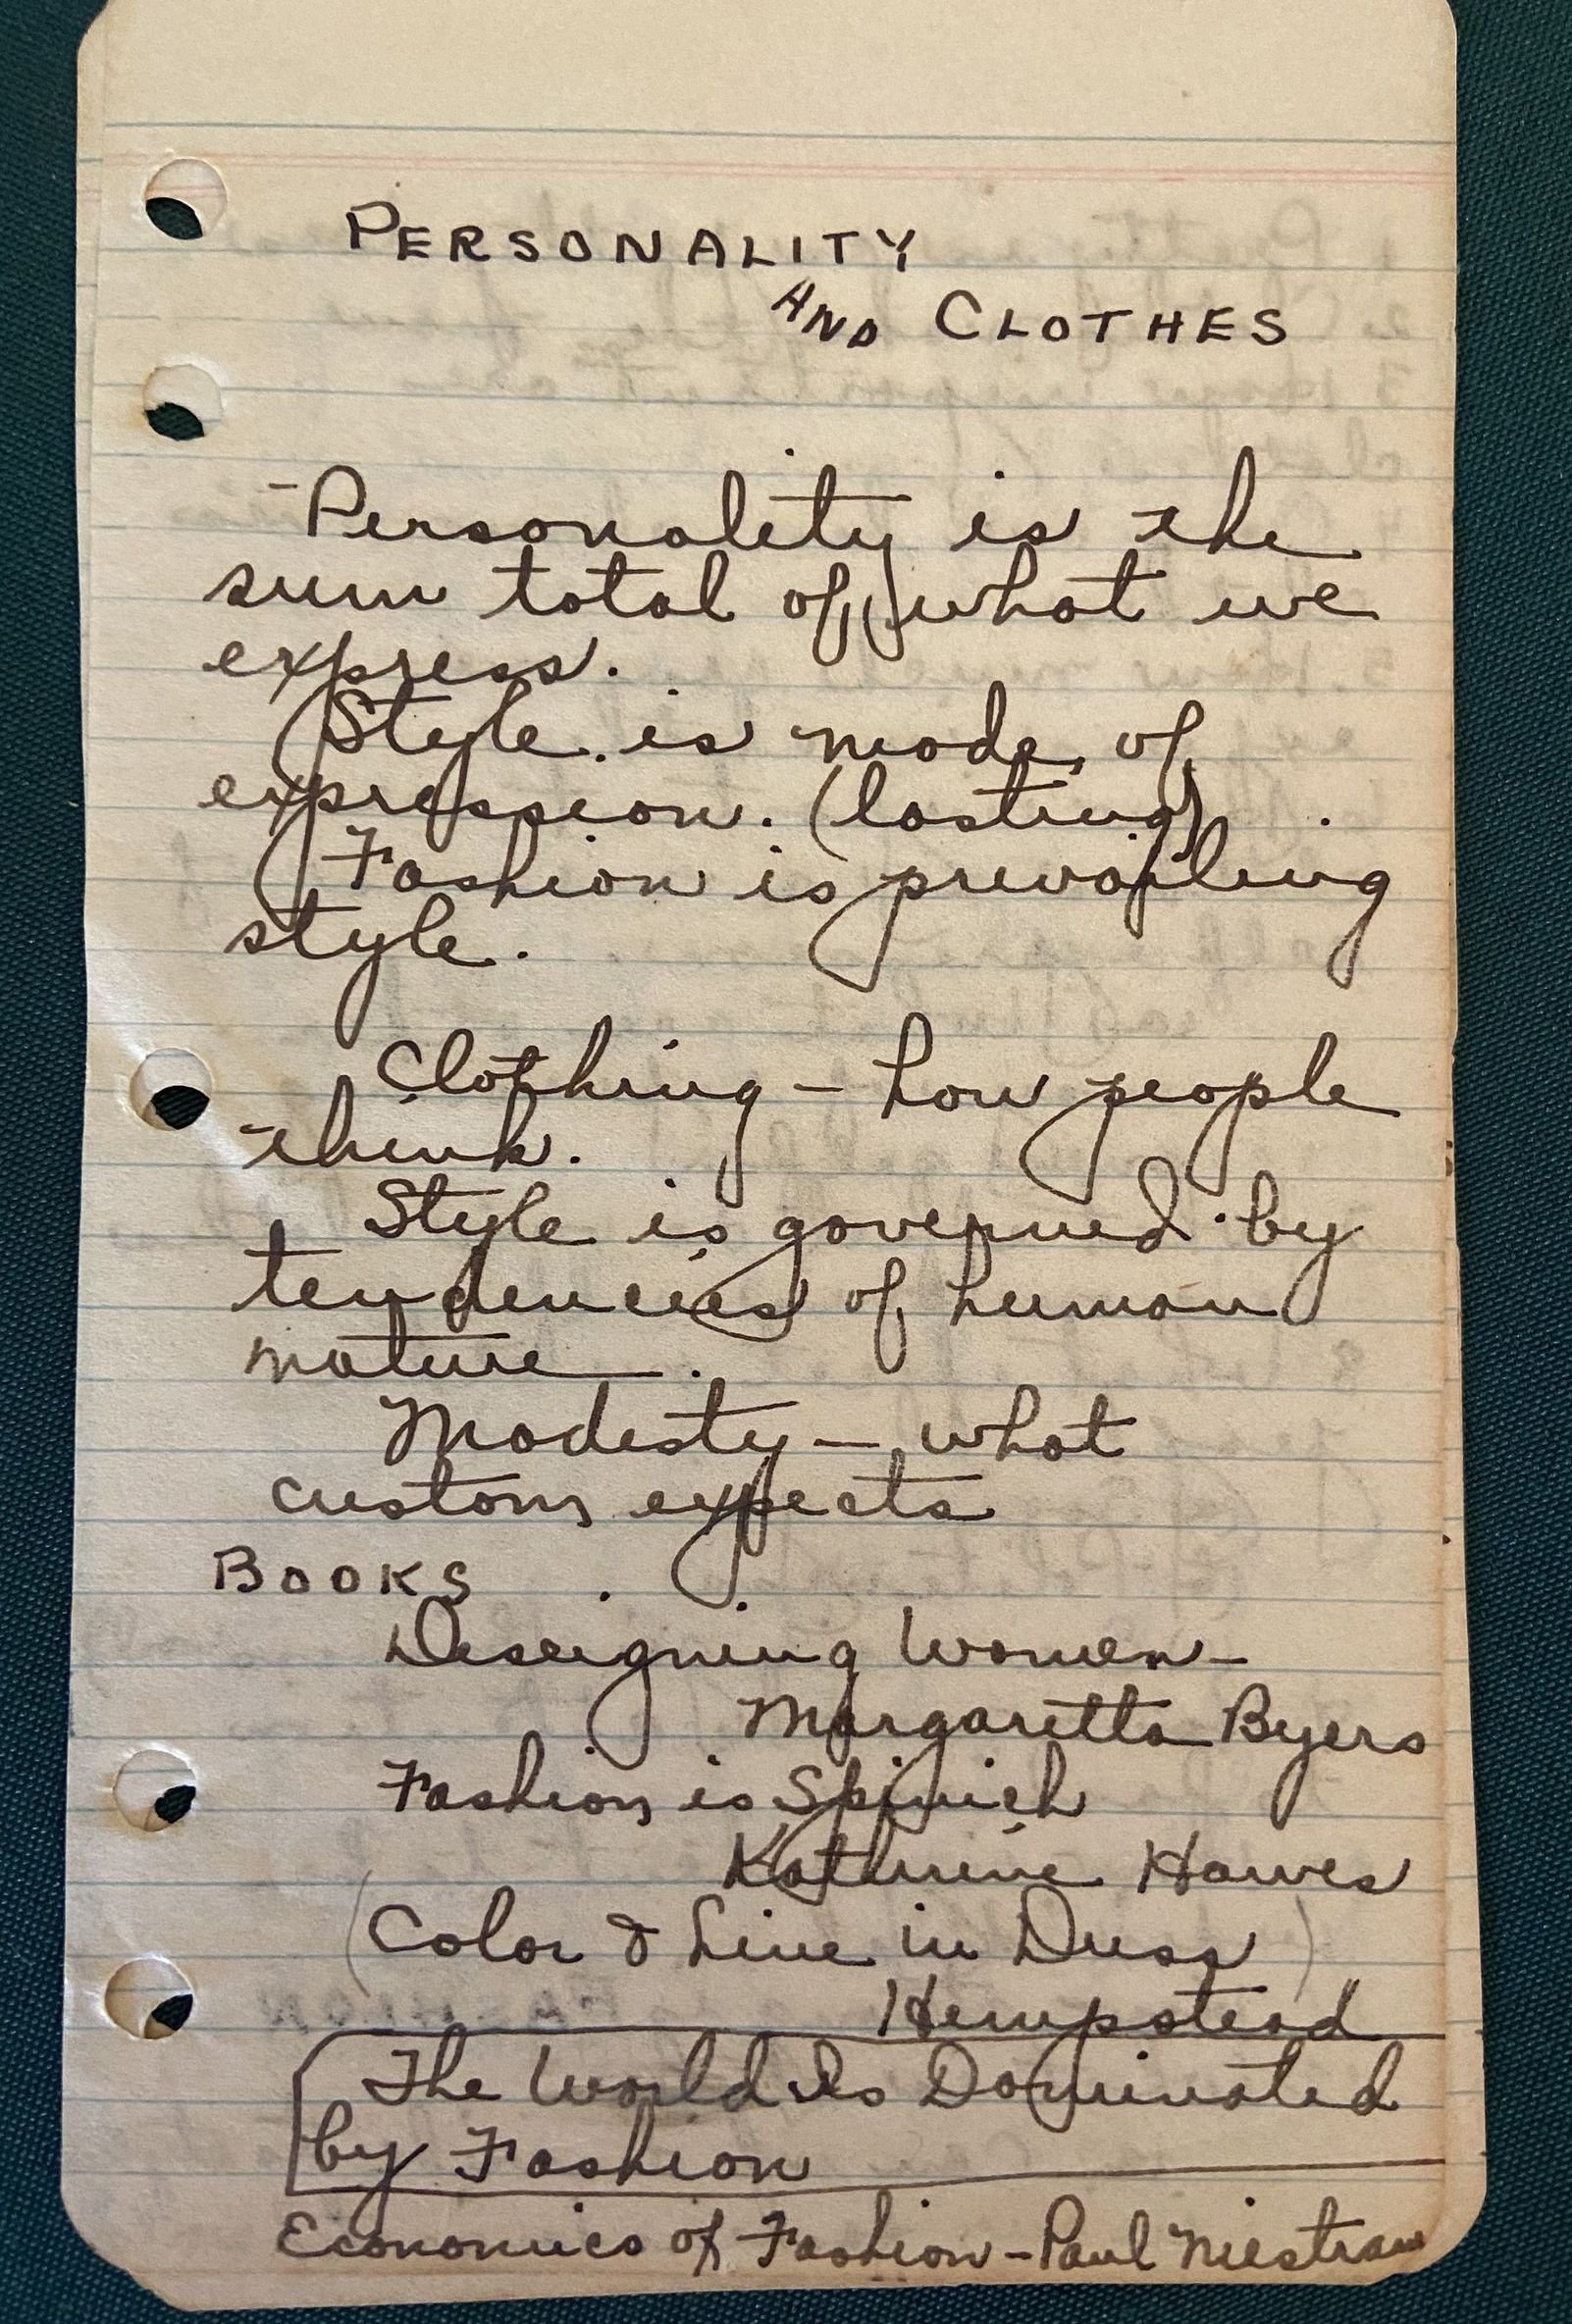 PERSONALITY
AND CLOTHES
Personality is the
sum total of what we
express.
Style is mode of
expression. (lasting)
Fashion is prevailing
style.
Clothing – how people
think.
Style is governed by
tendencies of human
nature.
Modesty – what
custom expects
BOOKS
Designing Women –
Margaretta Byers
Fashion is Spinich
Kathrine Hawes
(Color & Line in Dress)
Hempstead
The World Is Dominated
by Fashion
Economics of Fashion – Paul